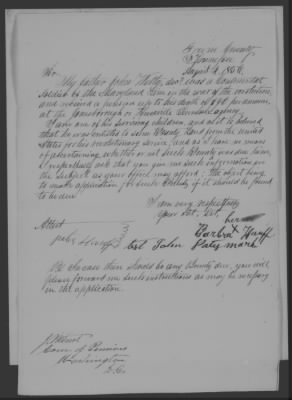 Green County
Tennessee
August 4, 1856
Sir.
My father John Kelly, decd. was a Continental
Soldier of the Maryland Line in the war of the revolution,
and received a pension up to his death of $96 per annum,
at the Jonesborough or Knoxville Tennessee agency.
I am one of his surviving children, and as I believed
that he was entitled to some Bounty Land from the United
States for his revolutionary service, and as I have no means
of ascertaining whether or not such Bounty was due him,
I respectfully ask that you give me such information on
the subject as your office may afford: The object being
to make application for such Bounty if it should be found
to be due.
I am very respectfully
Your Obt. Svt.
Attest
her
Barbra Huff
mark
test John
If in case there should be any Bounty due, you will
please forward me such instructions as may be necessary
in the application.
Com. of Pensions
Washington
D. C.